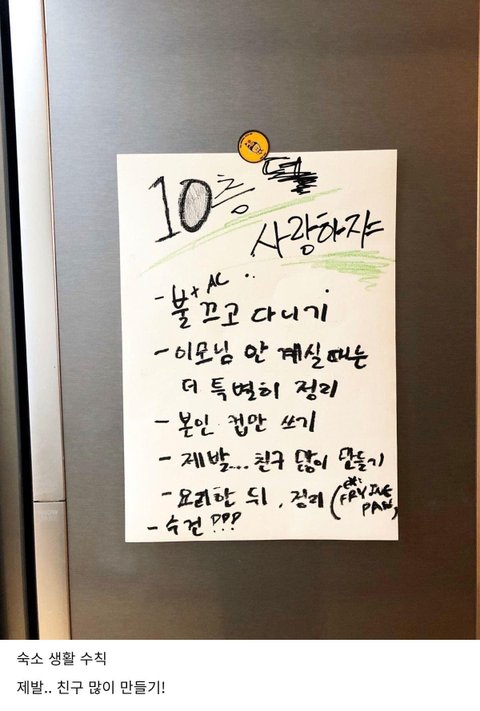 10층
사랑하쟈
- 불 + AC 끄고 다니기
- 이모님 안 계실 때는
더 특별히 정리
- 본인 컵만 쓰기
- 제발... 친구 많이 만들기
- 요리한 뒤, 정리 (ex: FRYING PAN)
- 수건 ???
숙소 생활 수칙
제발.. 친구 많이 만들기!